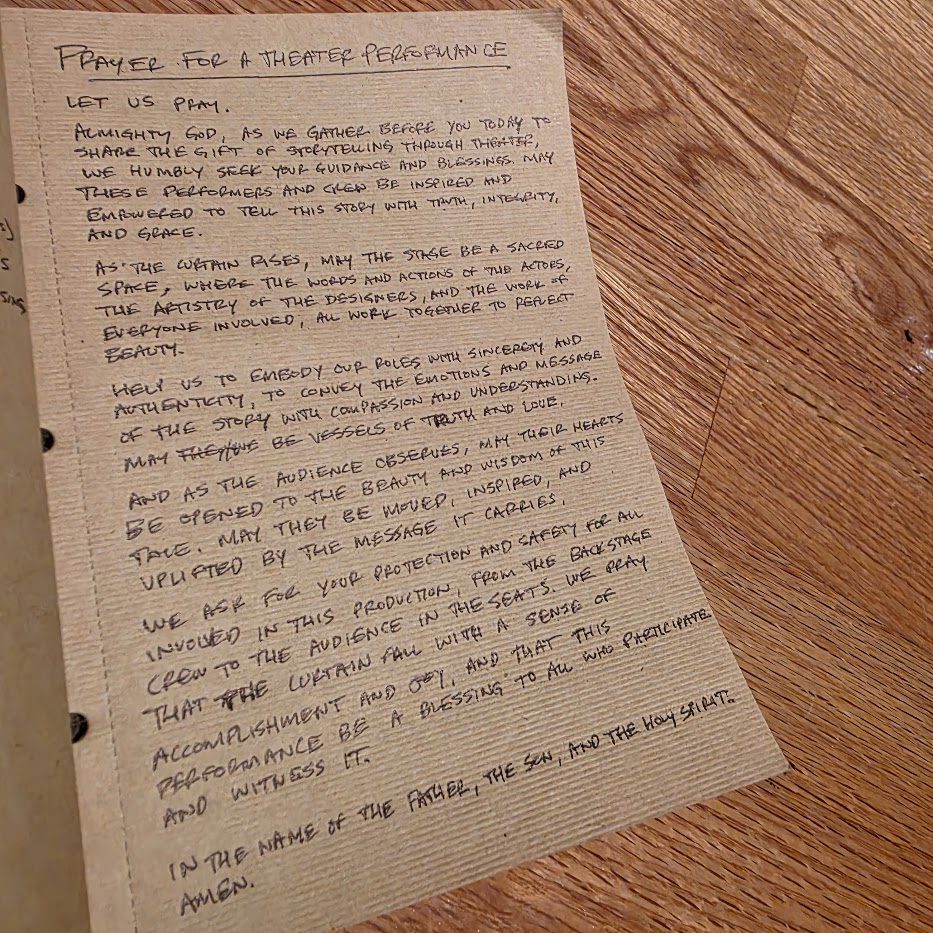 PRAYER FOR A THEATER PERFORMANCE
LET US PRAY.
ALMIGHTY GOD, AS WE GATHER BEFORE YOU TODAY TO
SHARE THE GIFT OF STORYTELLING THROUGH THEATER,
WE HUMBLY SEEK YOUR GUIDANCE AND BLESSINGS. MAY
THESE PERFORMERS AND CREW BE INSPIRED AND
EMPOWERED TO TELL THIS STORY WITH TRUTH, INTEGRITY,
AND GRACE.
AS THE CURTAIN RISES, MAY THE STAGE BE A SACRED
SPACE, WHERE THE WORDS AND ACTIONS OF THE ACTORS,
THE ARTISTRY OF THE DESIGNERS, AND THE WORK OF
EVERYONE INVOLVED, ALL WORK TOGETHER TO REFLECT
BEAUTY.
HELP US TO EMBODY OUR ROLES WITH SINCERETY AND
AUTHENTICITY, TO CONVEY THE EMOTIONS AND MESSAGE
OF THE STORY WITH COMPASSION AND UNDERSTANDING.
MAY THEY/WE BE VESSELS OF TRUTH AND LOVE.
AND AS THE AUDIENCE OBSERVES, MAY THEIR HEARTS
BE OPENED TO THE BEAUTY AND WISDOM OF THIS
TALE. MAY THEY BE MOVED, INSPIRED, AND
UPLIFTED BY THE MESSAGE IT CARRIES.
WE ASK FOR YOUR PROTECTION AND SAFETY FOR ALL
INVOLVED IN THIS PRODUCTION, FROM THE BACKSTAGE
CREW TO THE AUDIENCE IN THE SEATS. WE PRAY
THAT THE CURTAIN FALL WITH A SENSE OF
ACCOMPLISHMENT AND JOY, AND THAT THIS
PERFORMANCE BE A BLESSING TO ALL WHO PARTICIPATE
AND WITNESS IT.
IN THE NAME OF THE FATHER, THE SON, AND THE HOLY SPIRIT.
AMEN.